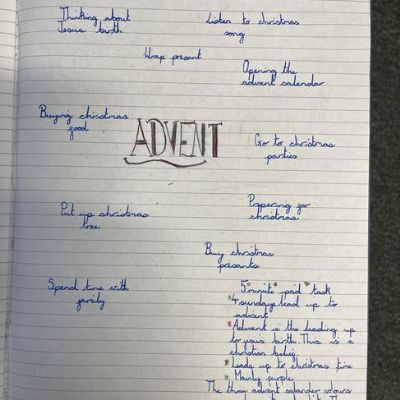 Thinking about
Jesus birth
Listen to christmas
song
Wrap present
Opening the
advent calendar
Buying christmas
food
ADVENT
Go to christmas
parties
Put up christmas
tree
Preppering for
christmas
Buy christmas
presants
Spend time with
family
5 minite pad task
*4 sundays lead up to
advent
*Advent is the leading up
to jesus birth. This is a
christian belief
*Leads up to christmas time
* Mainly purple
The three advent calander colours